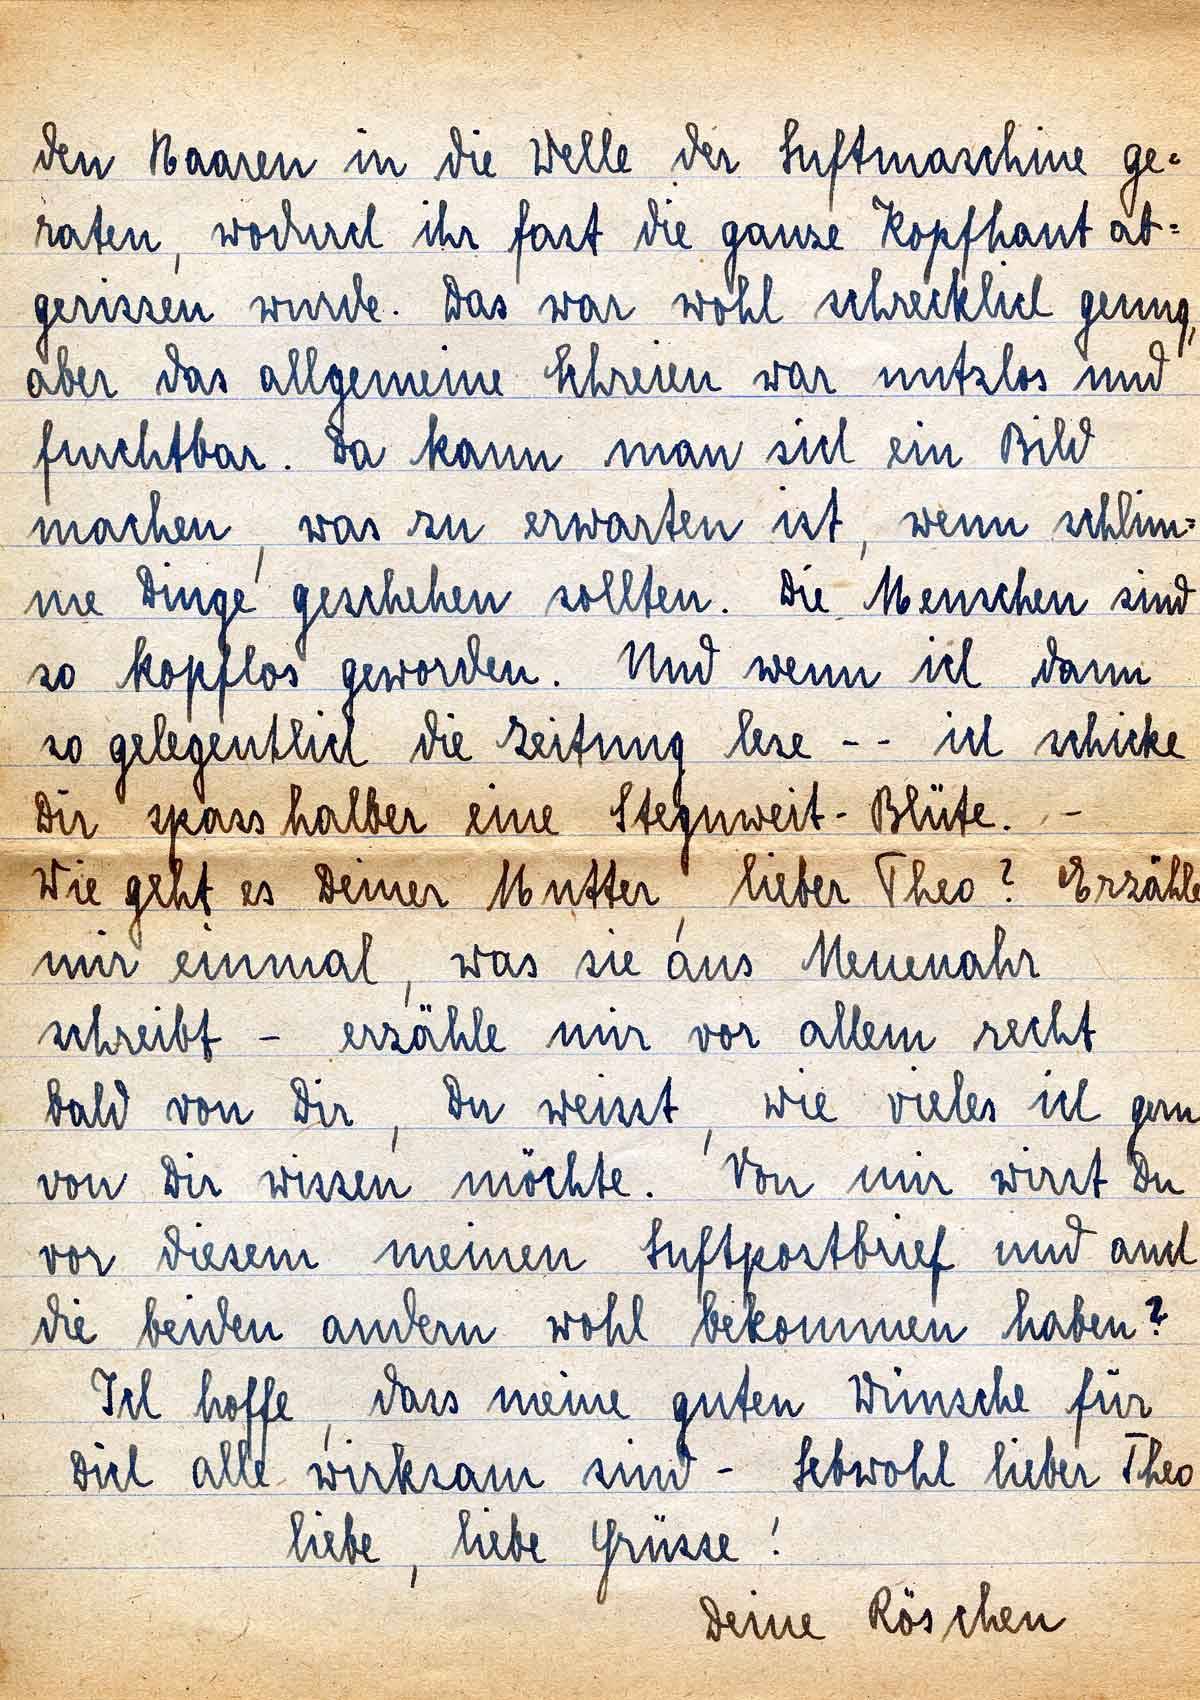 den Haaren in die Welle der Luftmaschine ge=
raten, wodurch ihr fast die ganze Kopfhaut ab=
gerissen wurde. Das war wohl schrecklich genug,
aber das allgemeine Schreien war nutzlos und
furchtbar. Da kann man sich ein Bild
machen, was zu erwarten ist, wenn schlim=
me Dinge geschehen sollten. Die Menschen sind
so kopflos geworden. Und wenn ich dann
so gelegentlich die Zeitung lese -- ich schicke
Dir spasshalber eine Steguweit-Blüte. -
Wie geht es Deiner Mutter, lieber Theo? Erzähle
mir einmal, was sie aus Neuenahr
schreibt - erzähle mir vor allem recht
bald von Dir, Du weisst, wie vieles ich gern
von Dir wissen möchte. Von mir wirst Du
vor diesem meinen Luftpostbrief und auch
die beiden andern wohl bekommen haben?
Ich hoffe, dass meine guten Wünsche für
Dich alle wirksam sind - Lebwohl lieber Theo
liebe, liebe Grüsse!
Deine Röschen